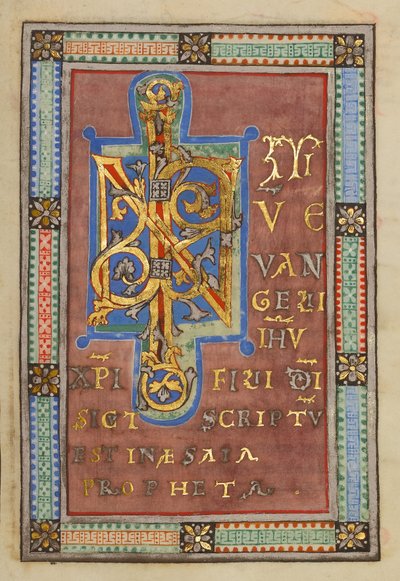 IN ITI
V E
VAN
GELII
IHV
XPI FILII DI
SICT SCRIPTV
EST IN ÆSAIA
PROPHETA.